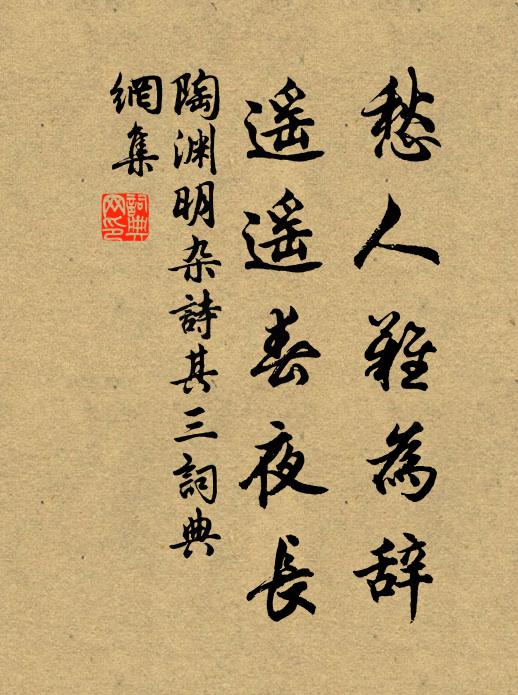 愁人難為辞
遥遥春夜長
陶渊明杂詩其三詞典
網集
詞典
网印